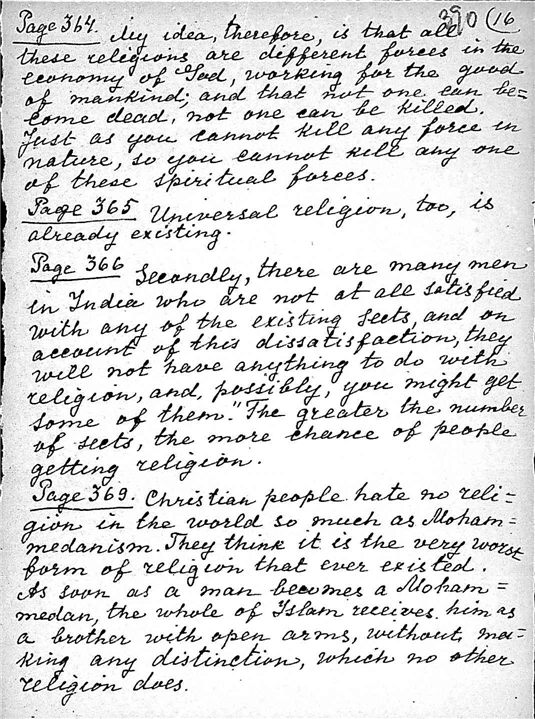 390 (16
Page 364. My idea, therefore, is that all
these religions are different forces in the
economy of God, working for the good
of mankind; and that not one can be=
come dead, not one can be killed.
Just as you cannot kill any force in
nature, so you cannot kill any one
of these spiritual forces.
Page 365 Universal religion, too, is
already existing.
Page 366 Secondly, there are many men
in India who are not at all satisfied
with any of the existing sects, and on
account of this dissatisfaction, they
will not have anything to do with
religion, and, possibly, you might get
some of them." The greater the number
of sects, the more chance of people
getting religion.
Page 369. Christian people hate no reli=
gion in the world so much as Moham=
medanism. They think it is the very worst
form of religion that ever existed.
As soon as a man becomes a Moham=
medan, the whole of Islam receives him as
a brother with open arms, without, ma=
king any distinction, which no other
religion does.